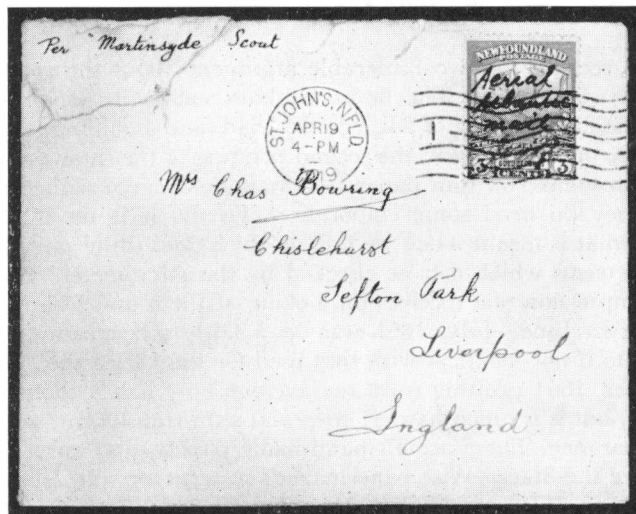 Per "Martinsyde" Scout
NEWFOUNDLAND
POSTAGE
Aerial
Atlantic
mail
3 CENTS 3
ST. JOHN'S, NFLD.
APR 19
4-PM
1919
Mrs Chas Bowring
Chislehurst
Sefton Park
Liverpool
England